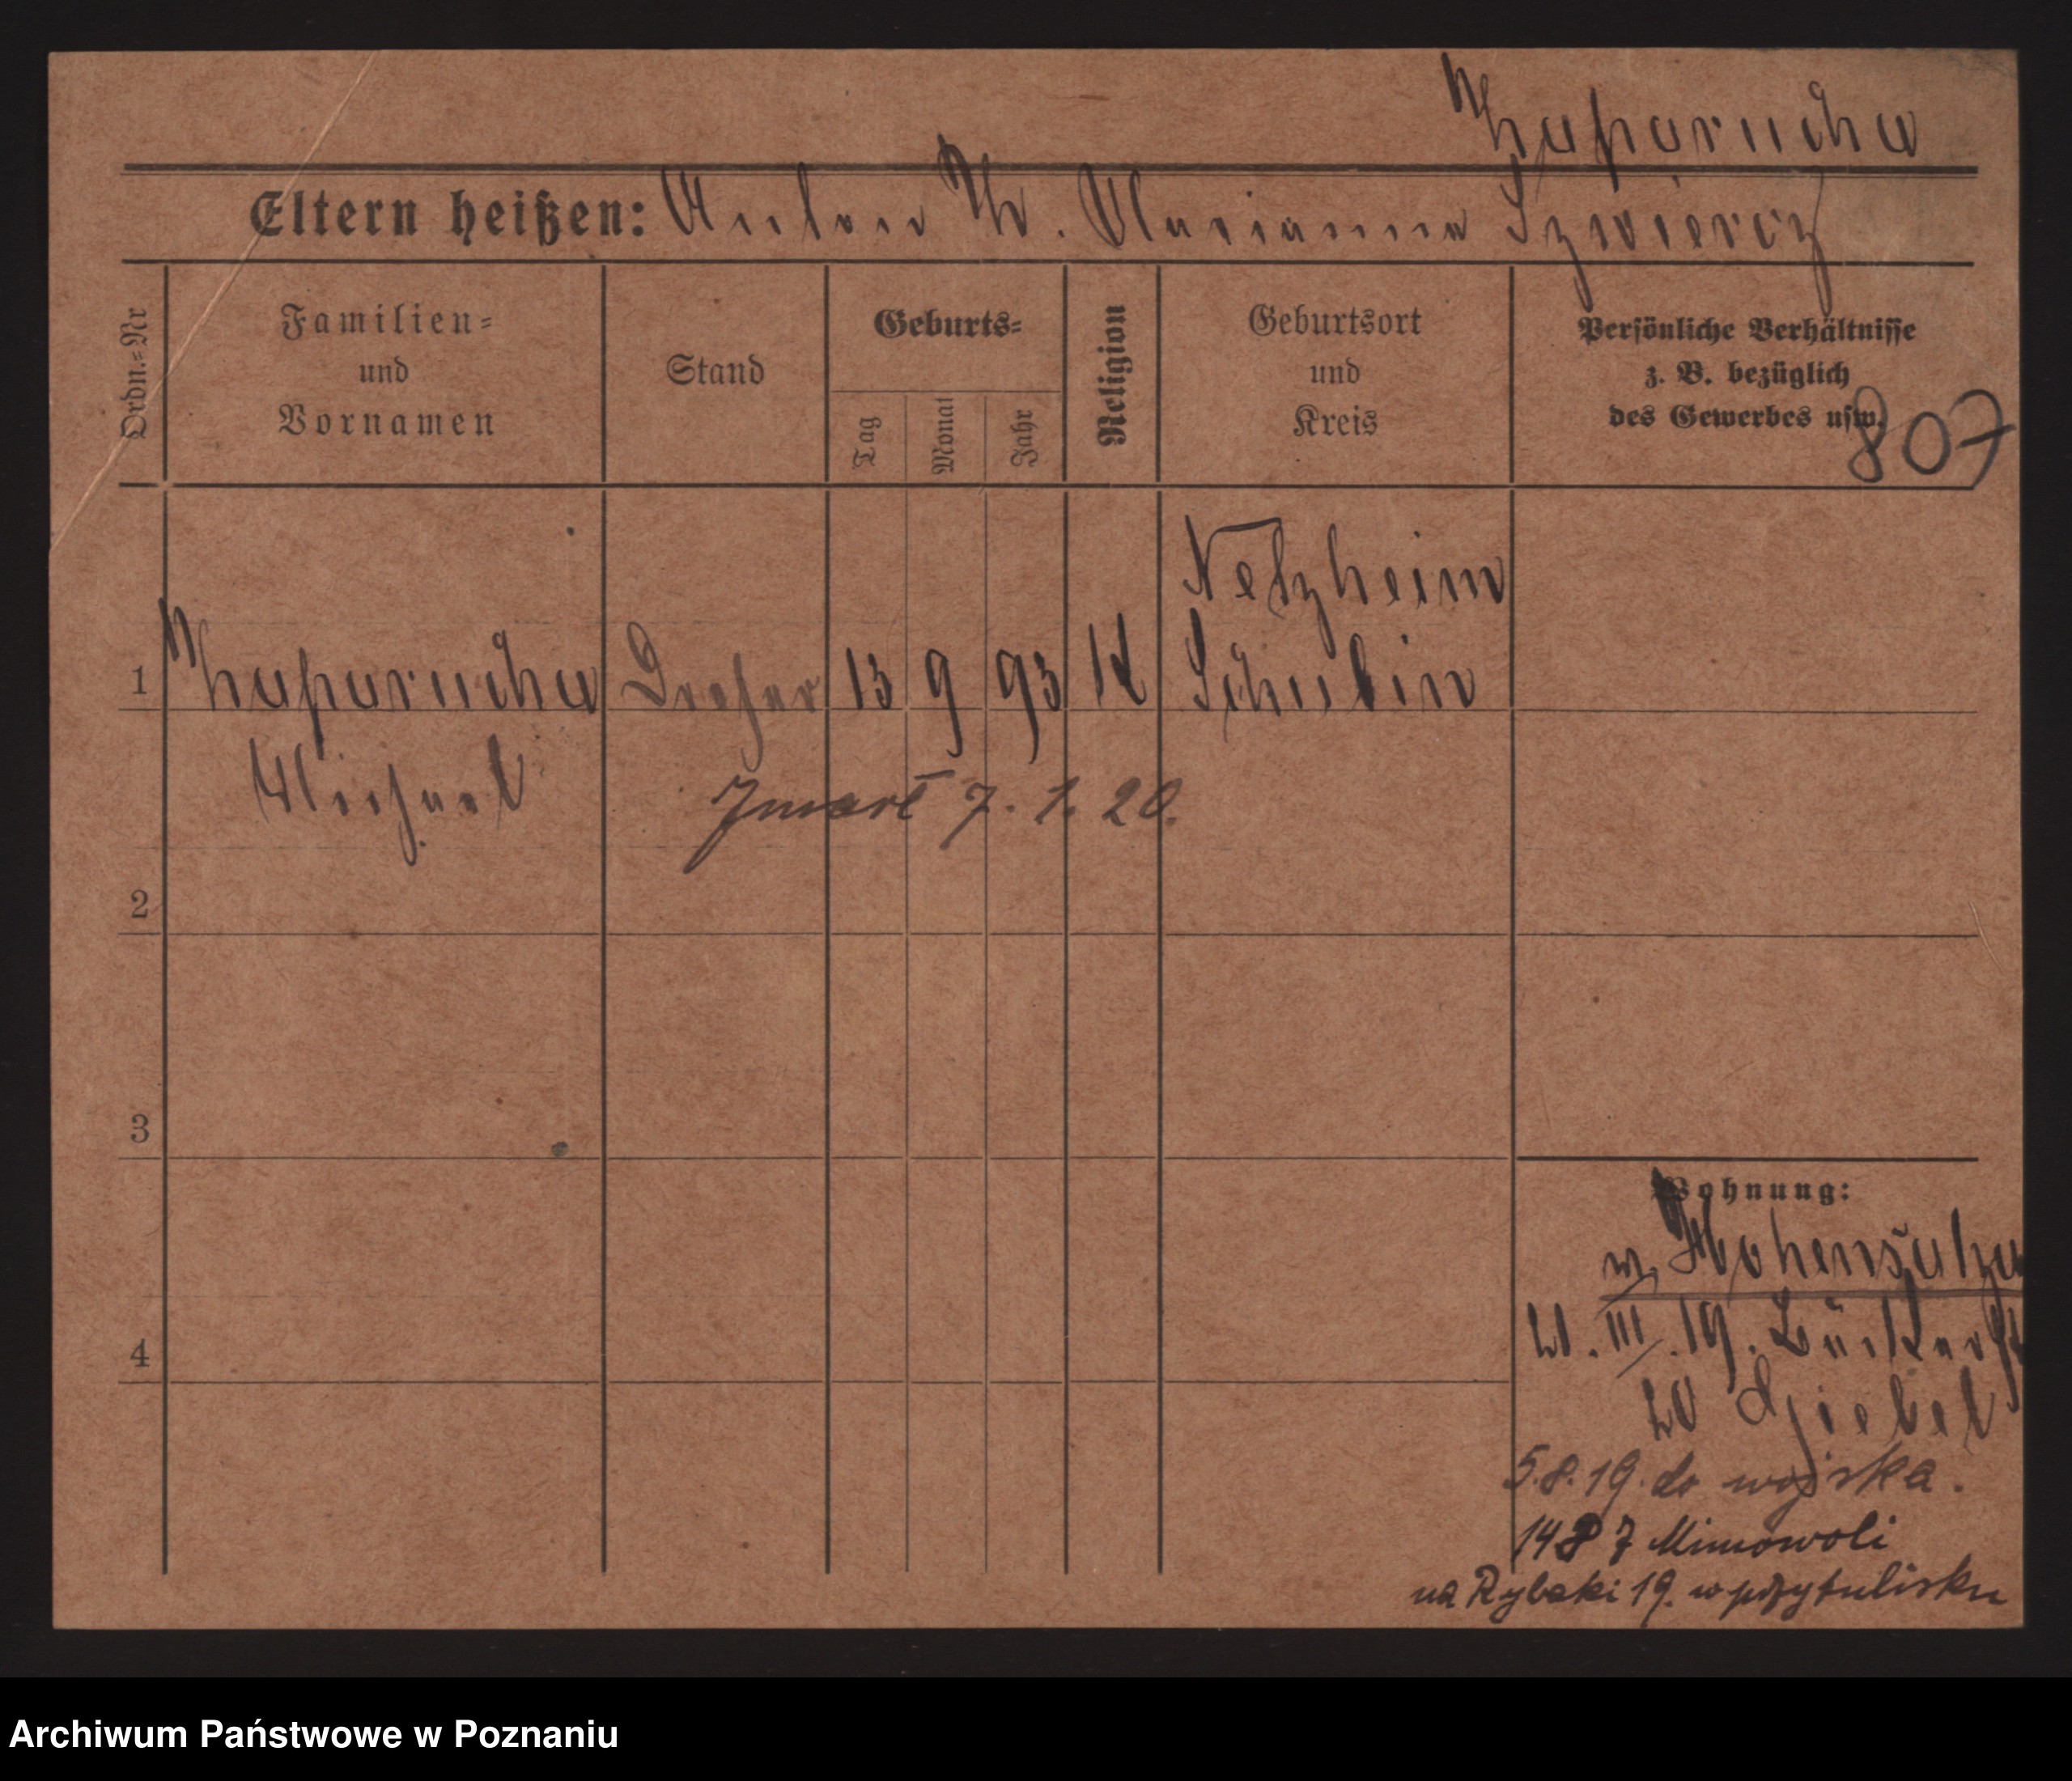 Kaparucha
Eltern heißen: Anton K. Marianna Szwiercz
Ordn.=Nr
Familien=
und
Vornamen
Stand
Geburts=
Tag
Monat
Jahr
Religion
Geburtsort
und
Kreis
Persönliche Verhältnisse
z. B. bezüglich
des Gewerbes usw.
807
Netzheim
1 Kaparucha Dreher 13 9 93 K Schubin
Michael
Zmarł 7. 1. 20.
2
3
4
Wohnung:
w. Hohensalza
21. III. 19. Bäckerstr
20 Giebel
5.8.19. do wojska.
14 8 Z Mimowoli
na Rybaki 19. w przytulisku
Archiwum Państwowe w Poznaniu